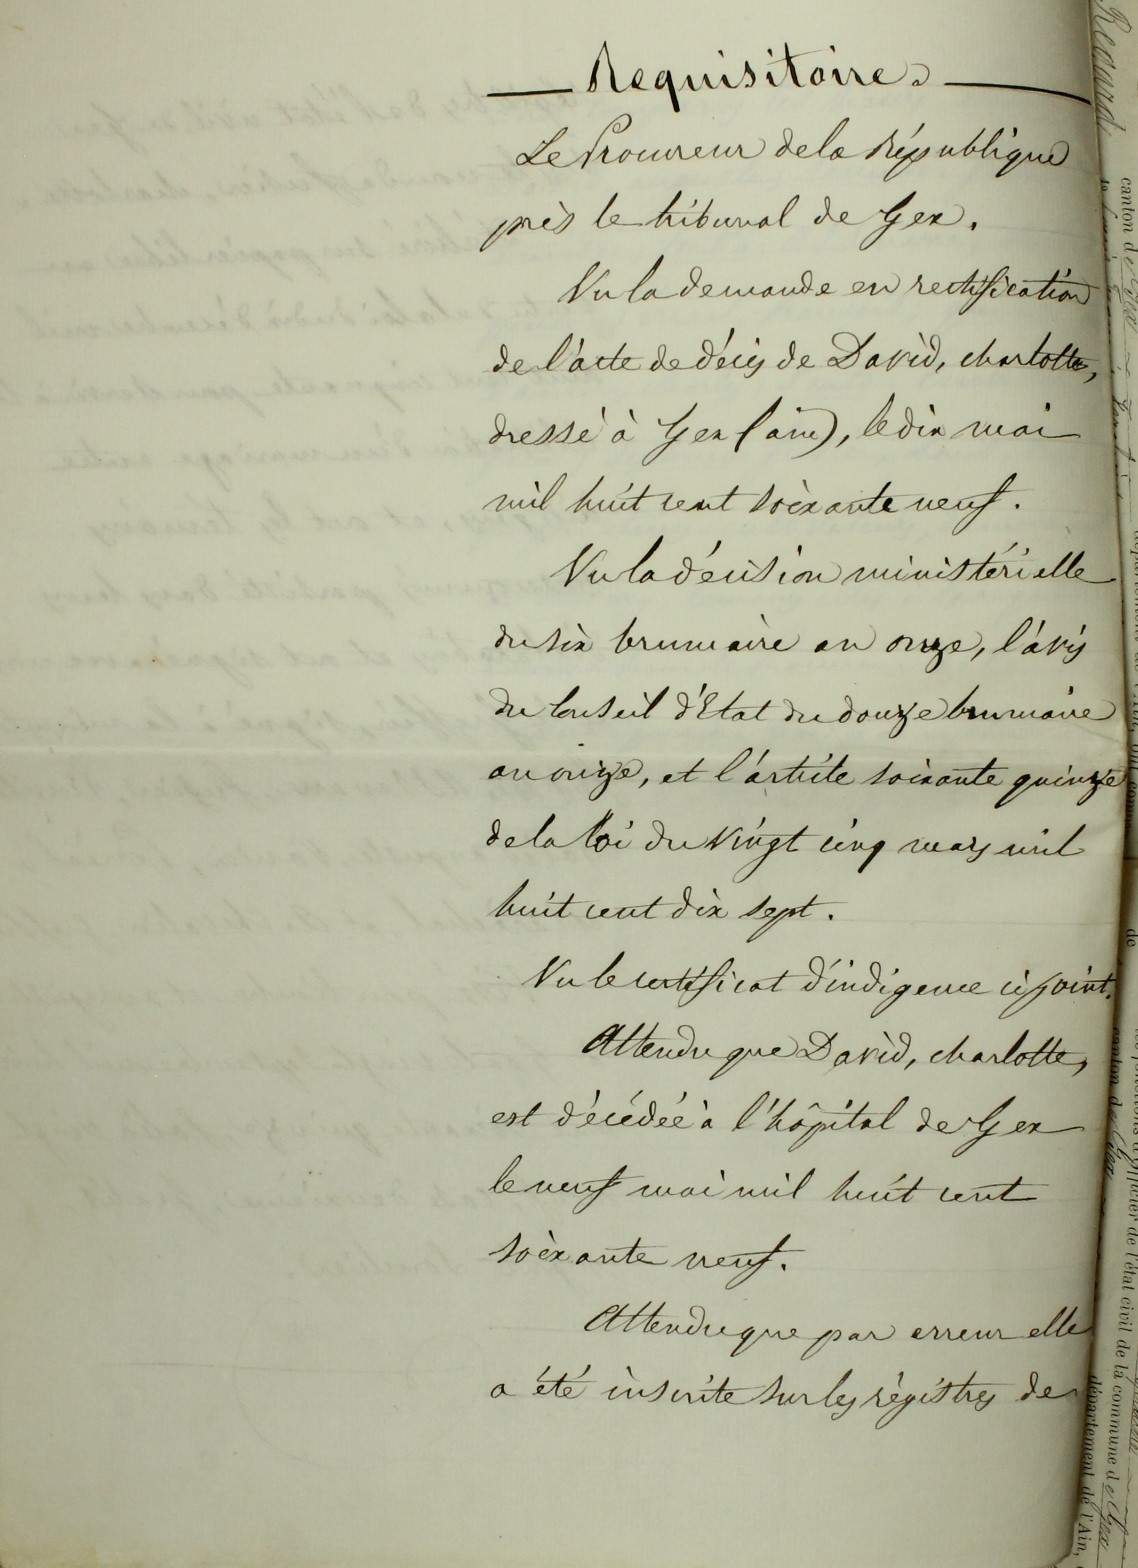 Requisitoire
Le Procureur de la République
près le tribunal de Gex.
Vu la demande en rectification
de l'acte de décès de David, charlotte,
dressé à Gex (ain), le dix mai
mil huit cent soixante neuf.
Vu la décision ministérielle
du six brumaire an onze, l'avis
du Conseil d'Etat du douze brumaire
an onze, et l'article soixante quinze
de la loi du vingt cinq mars mil
huit cent dix sept.
Vu le certificat d'indigence ci joint.
Attendu que David, charlotte,
est décédée à l'hôpital de Gex
le neuf mai mil huit cent
soixante neuf.
Attendu que par erreur elle
a été inscrite sur les régistres de
canton de
de
officier de l'état civil de la commune de Gex
département de l'Ain,